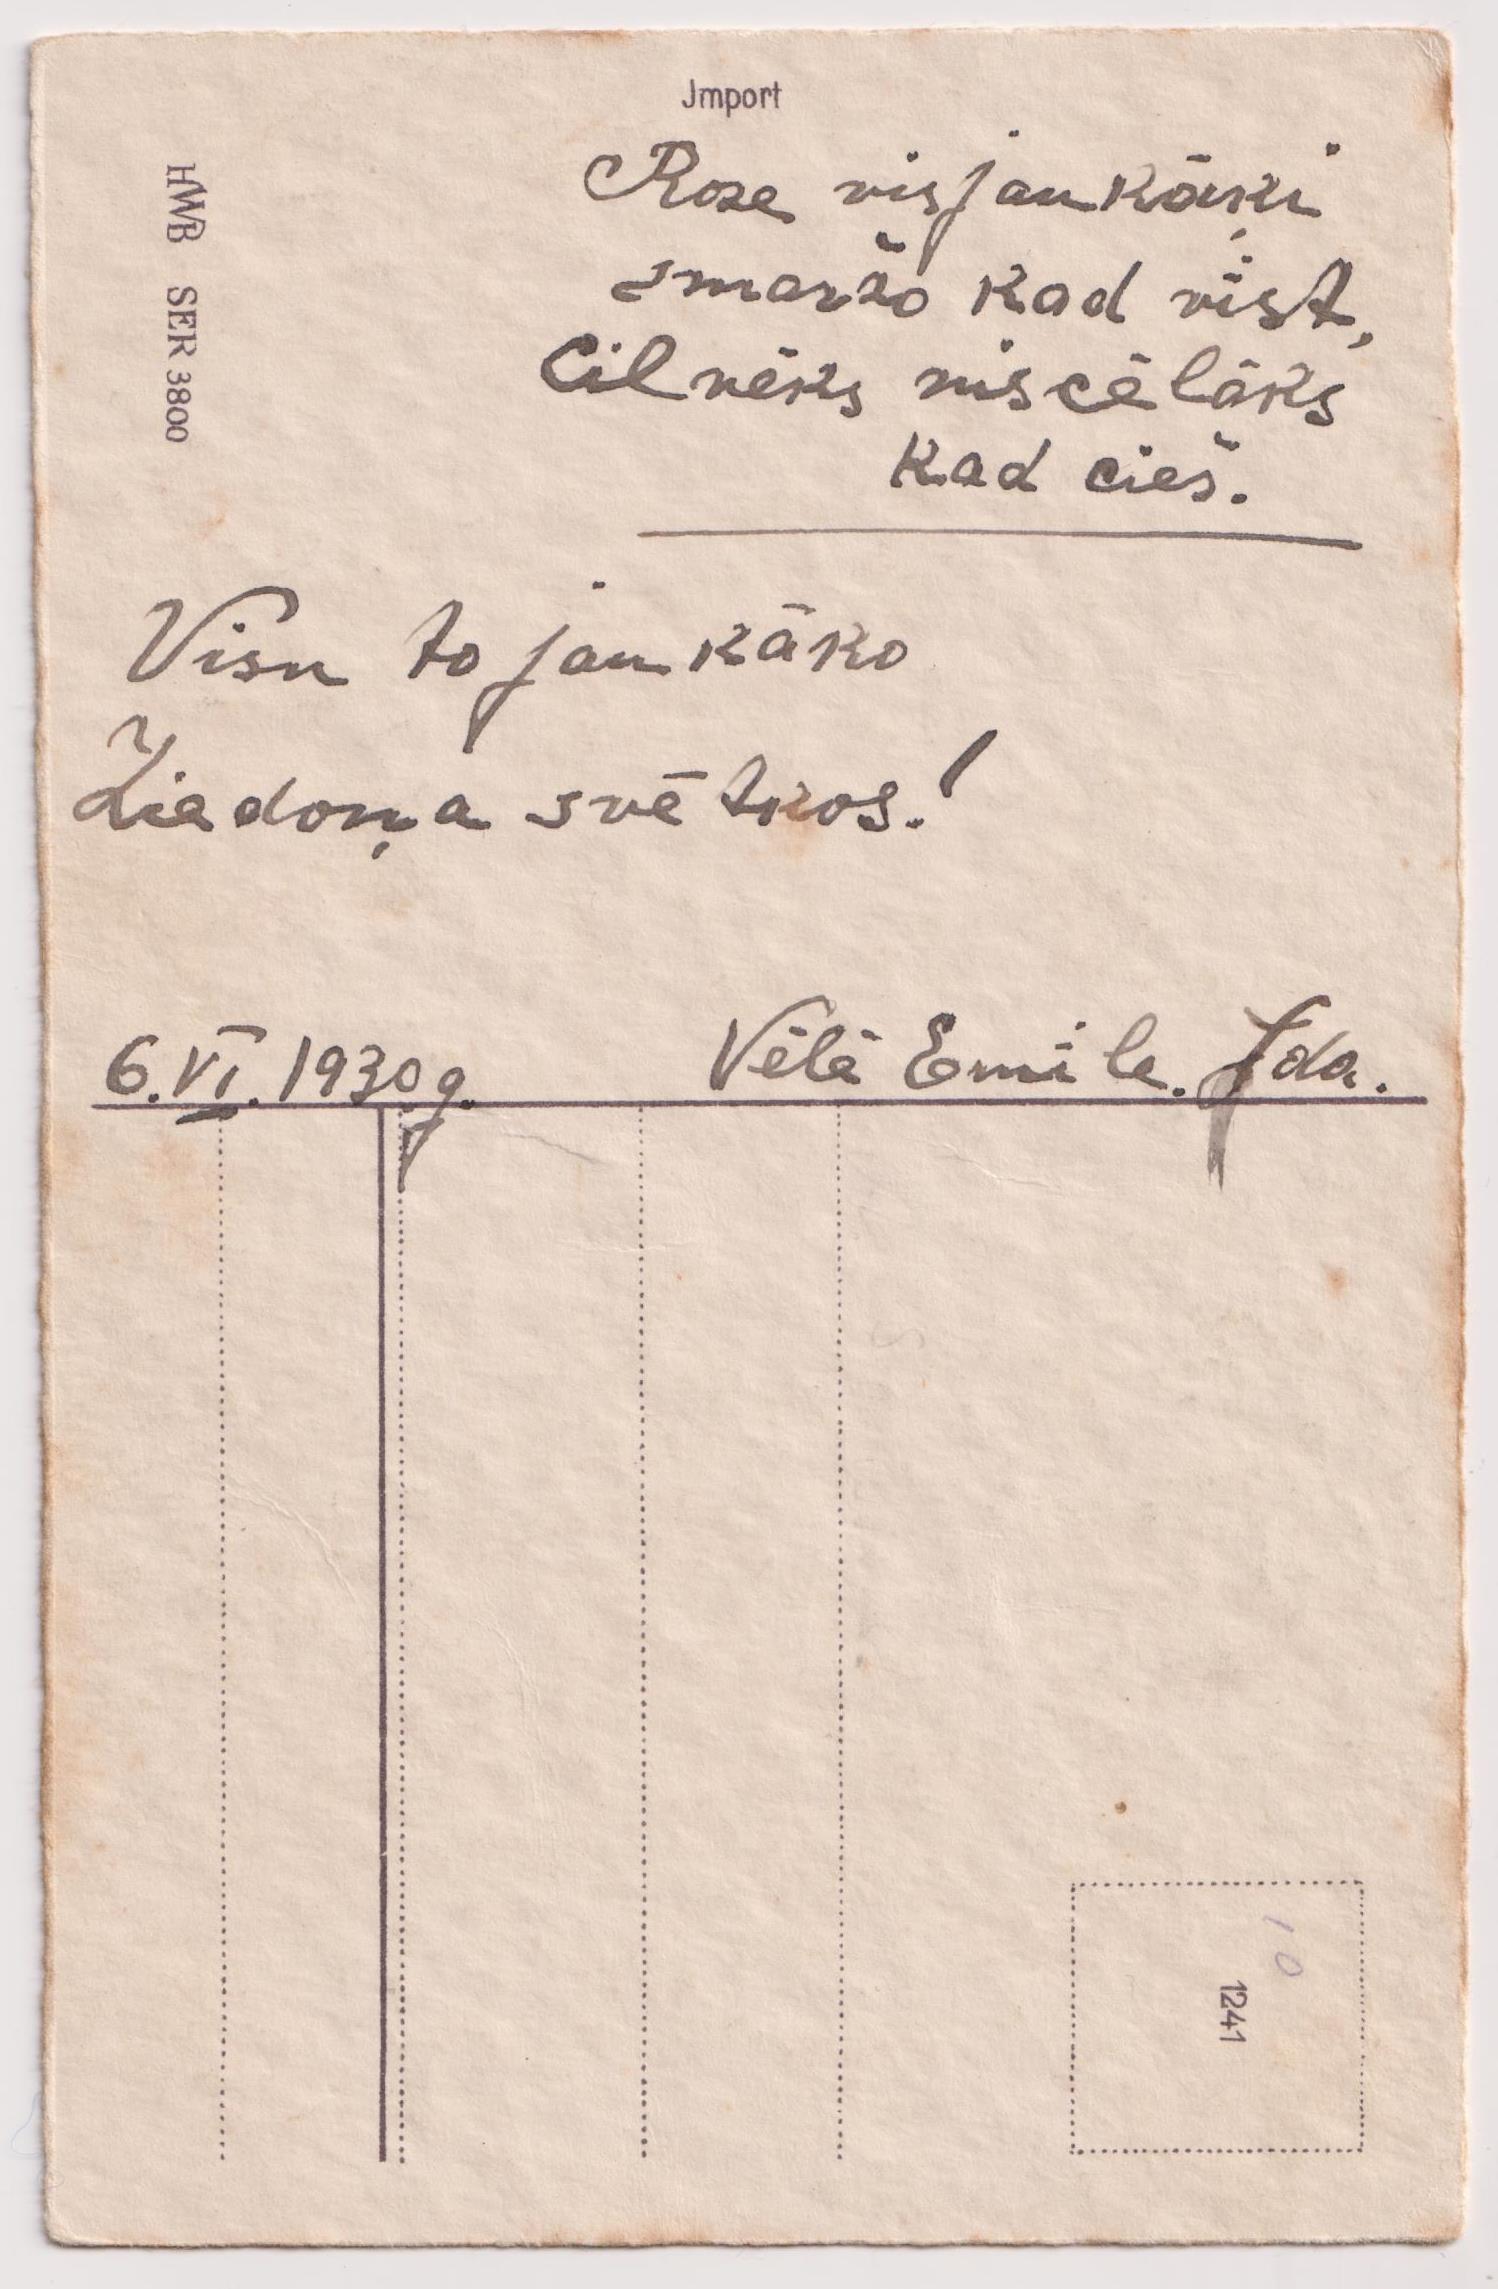 Jmport
HWB SER 3800
Roze visjaukāķi
smaržo kad vīst,
Cilvēks viscēlāks
kad cieš.
Visu to jaukāko
Ziedoņa svētkos!
6.VI.1930g. Vēlē Emīle. Ida.
10
1241